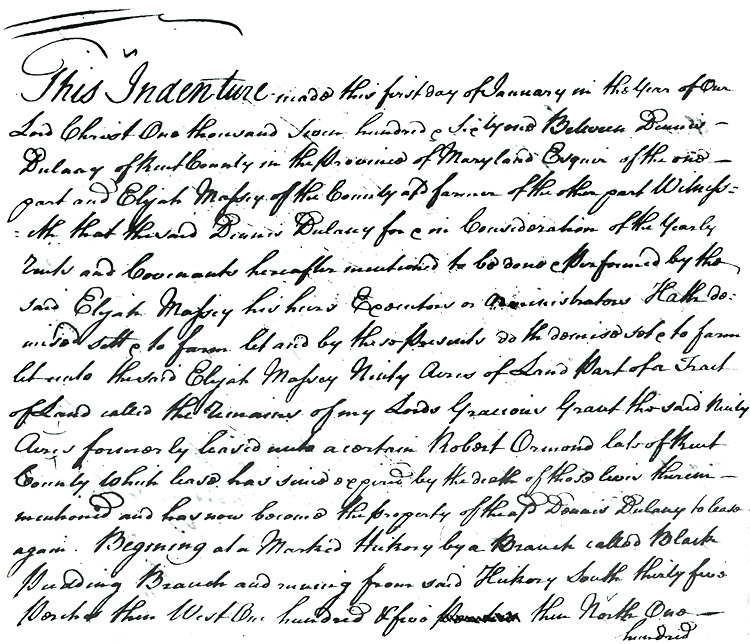 This Indenture made this first day of January in the Year of Our
Lord Christ One thousand seven hundred & Sixty one Between Dennis –
Dulany of Kent County in the Province of Maryland Esquir of the one –
part and Elijah Massey of the County afd farmer of the other part Witness=
=eth that the said Dennis Dulany for & in Consideration of the Yearly
Rents and Covenants hereafter mentioned to be done & Performed by the
said Elijah Massey his heirs Executors or Administrators Hath de=
mised sett & to farm let and by these Presents doth demise set & to farm
let unto the said Elijah Massey Ninty Acres of Land Part of a Tract
of Land called the Remains of my Lords Gracious Grant the said Ninty
Acres formerly leased unto a certain Robert Ormond late of Kent
County which lease has since expired by the death of those lives therein –
mentioned and has now become the property of the afd Dennis Dulany to lease
again. Begining at a Marked Hickory by a Branch called Black
Pudding Branch and runing from said Hickory South thirty five
Perches then West One hundred & five then North One –
hundred